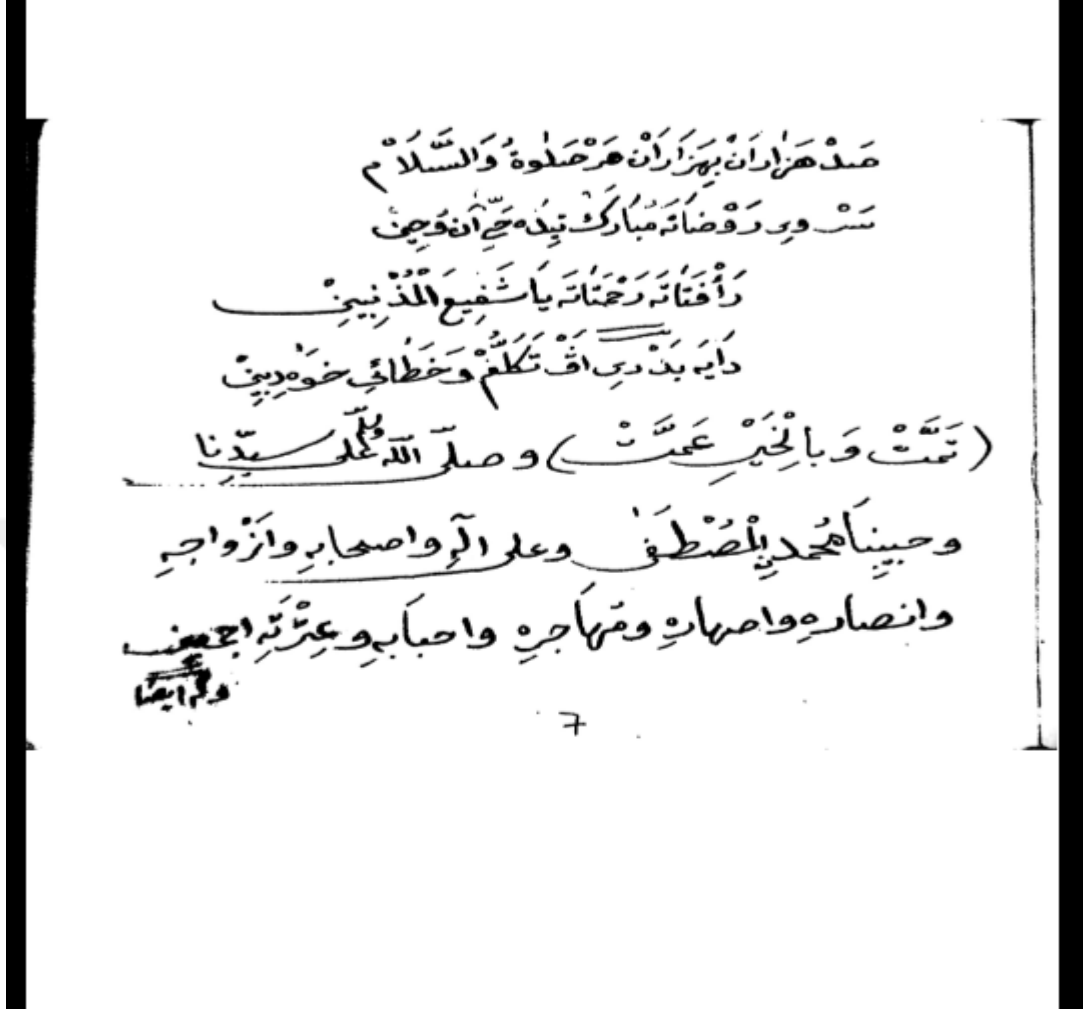 صَدْ هَزَارَانْ بِهَزَارَانْ هَرْ صَلٰوةُ وَالسَّلَامْ
سَرْ وِی رَوْضَاتَه مُبَارَكْ تِبِدَه حَیّ آن وَحِینْ
رَأْفَتَاتَه رَحْمَتَاتَه یَا شَفِیعَ الْمُذْنِبِینْ
دَایَه بَدْرِی اَڤ تَكَلُّمْ وَخَطَائِی خوَه دِبِینْ
(تَمَّتْ وَبِالْخَیْرِ عَمَّتْ) و صلّی اللّه علی سیّدنا
وحبیبنا محمد المُصْطَفَی وعلی الهِ واصحابهِ وازْواجهِ
وانصارهِ واصهارهِ ومُهاجرهِ واحبابهِ وعِتْرَتِهِ اجمعین
7